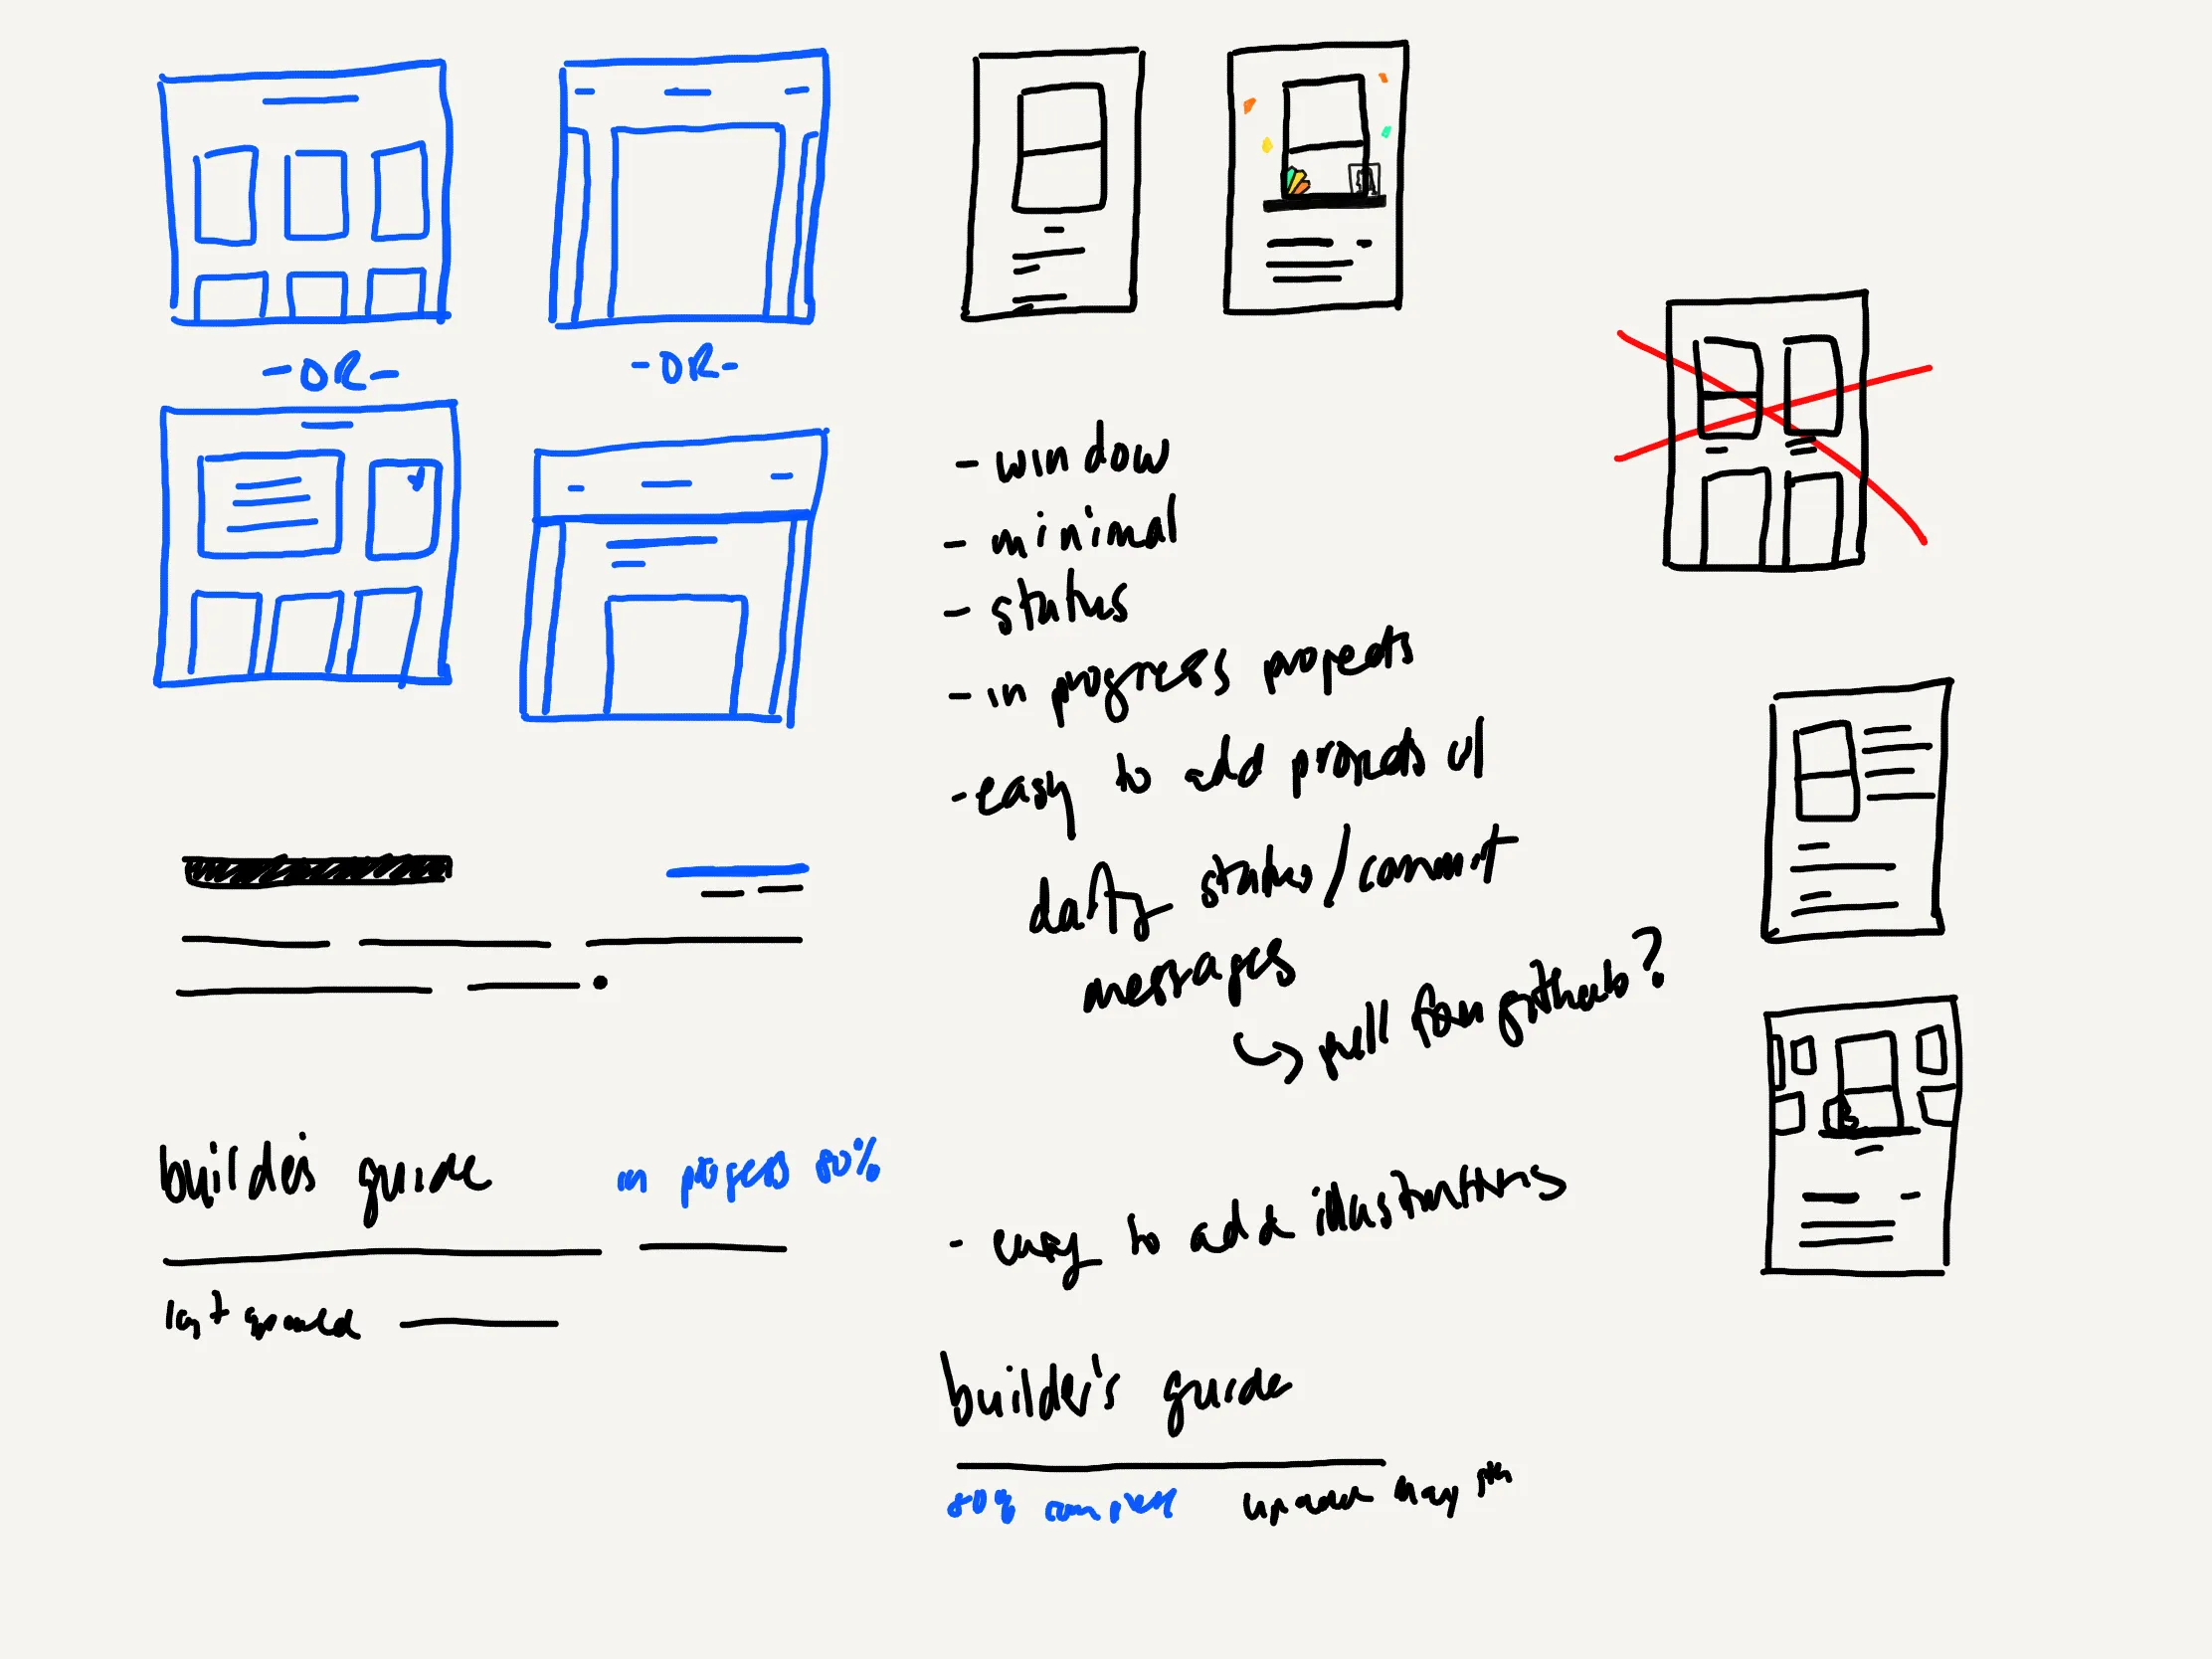 -OR-
-OR-
- window
- minimal
- status
- in progress projects
- easy to add projects w/
daily status/commit
messages
↳ pull from github?
builder's guide
in progress 80%
last updated
- easy to add illustrations
builder's guide
80% complete updated may 5th